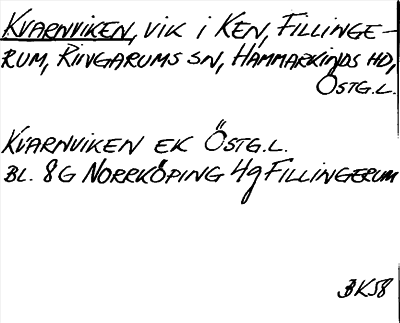 KVARNVIKEN, VIK I KEN, FILLINGE-
RUM, RINGARUMS SN, HAMMARKINDS HD,
ÖSTG.L.
KVARNVIKEN EK ÖSTG.L.
BL. 8G NORRKÖPING 4g FILLINGERUM
BK58